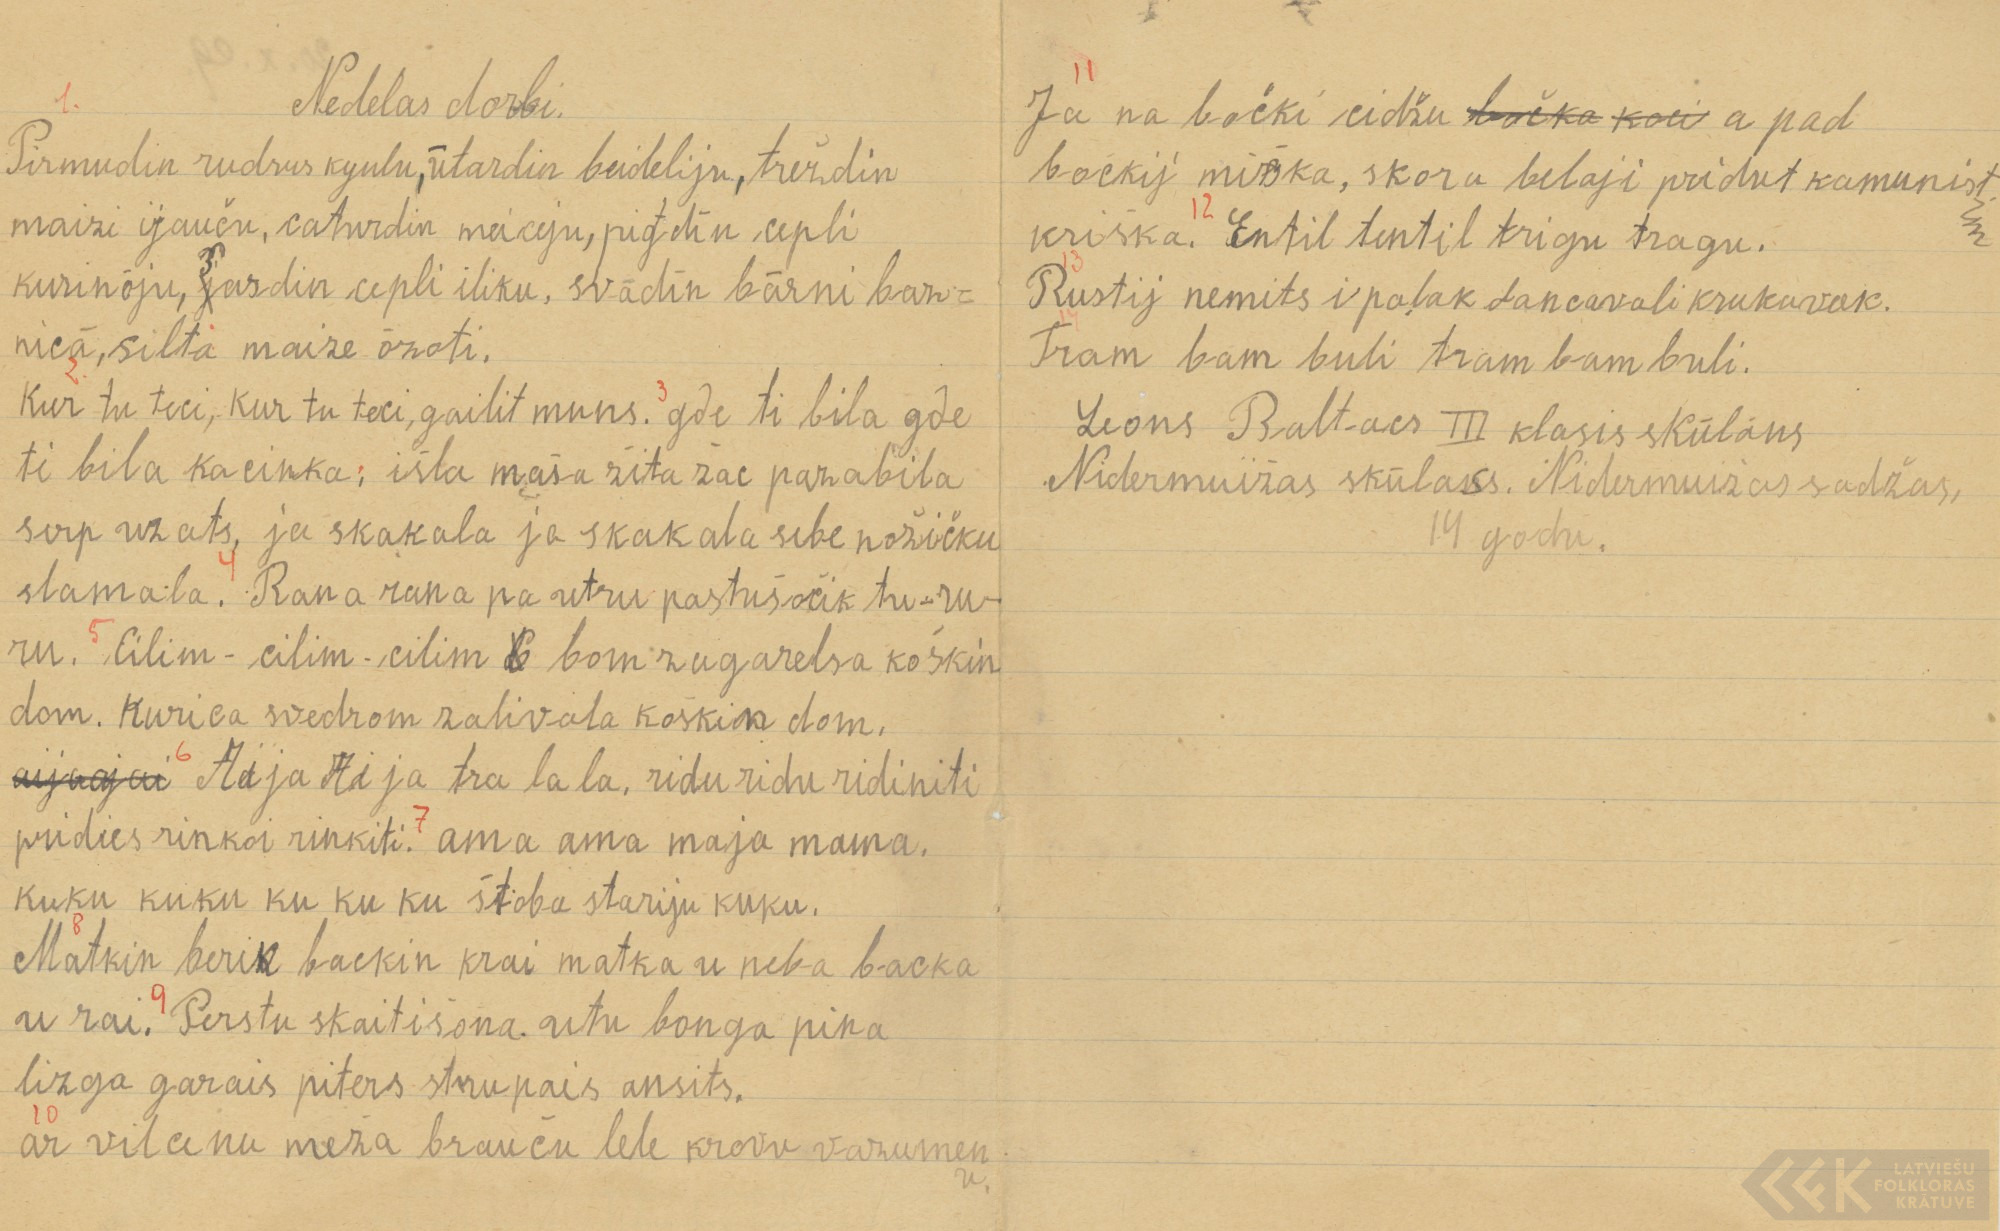 1. Nedelas dorbi.
Pirmudin rudzus kyulu, ūtardin beideliju, treždin
maizi ijauču, caturdin meiceju, pigtdin cepli
kurinōju, sasdin cepli iliku, svādin bārni baz=
nicā, siltā maize ōzoti.
2. Kur tu teci, kur tu teci, gailit muns. 3 gde ti bila gde
ti bila kacinka; išla maša žita žac pazabila
serp uzats, ja skakala ja skakala sebe nožičku
slamala. 4 Rana rana pa utru pastušočik tu-ru-
ru. 5 Cilim - cilim - cilim bom zagarelsa koškin
dom. Kurica svedrom zalivala koškin dom.
aijaajai 6 Aija Aija tra la la, ridu ridu ridiniti
pridies rinkoi rinkiti. 7 ama ama maja mama.
kuku kuku ku ku ku štoba stariju kuku.
8 Matkin berik backin krai matka u neba backa
u rai. 9 Perstu skaitišona. utu bonga pina
lizga garais piters strupais ansits.
10 ar vilcinu meža braucu lele krovu vazumen
u.
11 Ja na bočki cidžu bočka koci a pad
bočkij miška, skora belaji pridut kamunist
im
kriška. 12 Entil tentil trigu tragu.
13 Rustij nemits i polak tancavali krakavak.
14 Tram bam buli tram bam buli.
Leons Baltacs III klasis skūlāns
Nidermuižas skūlas. Nidermuižas sadžas,
14 godu.
LATVIEŠU
FOLKLORAS
KRĀTUVE